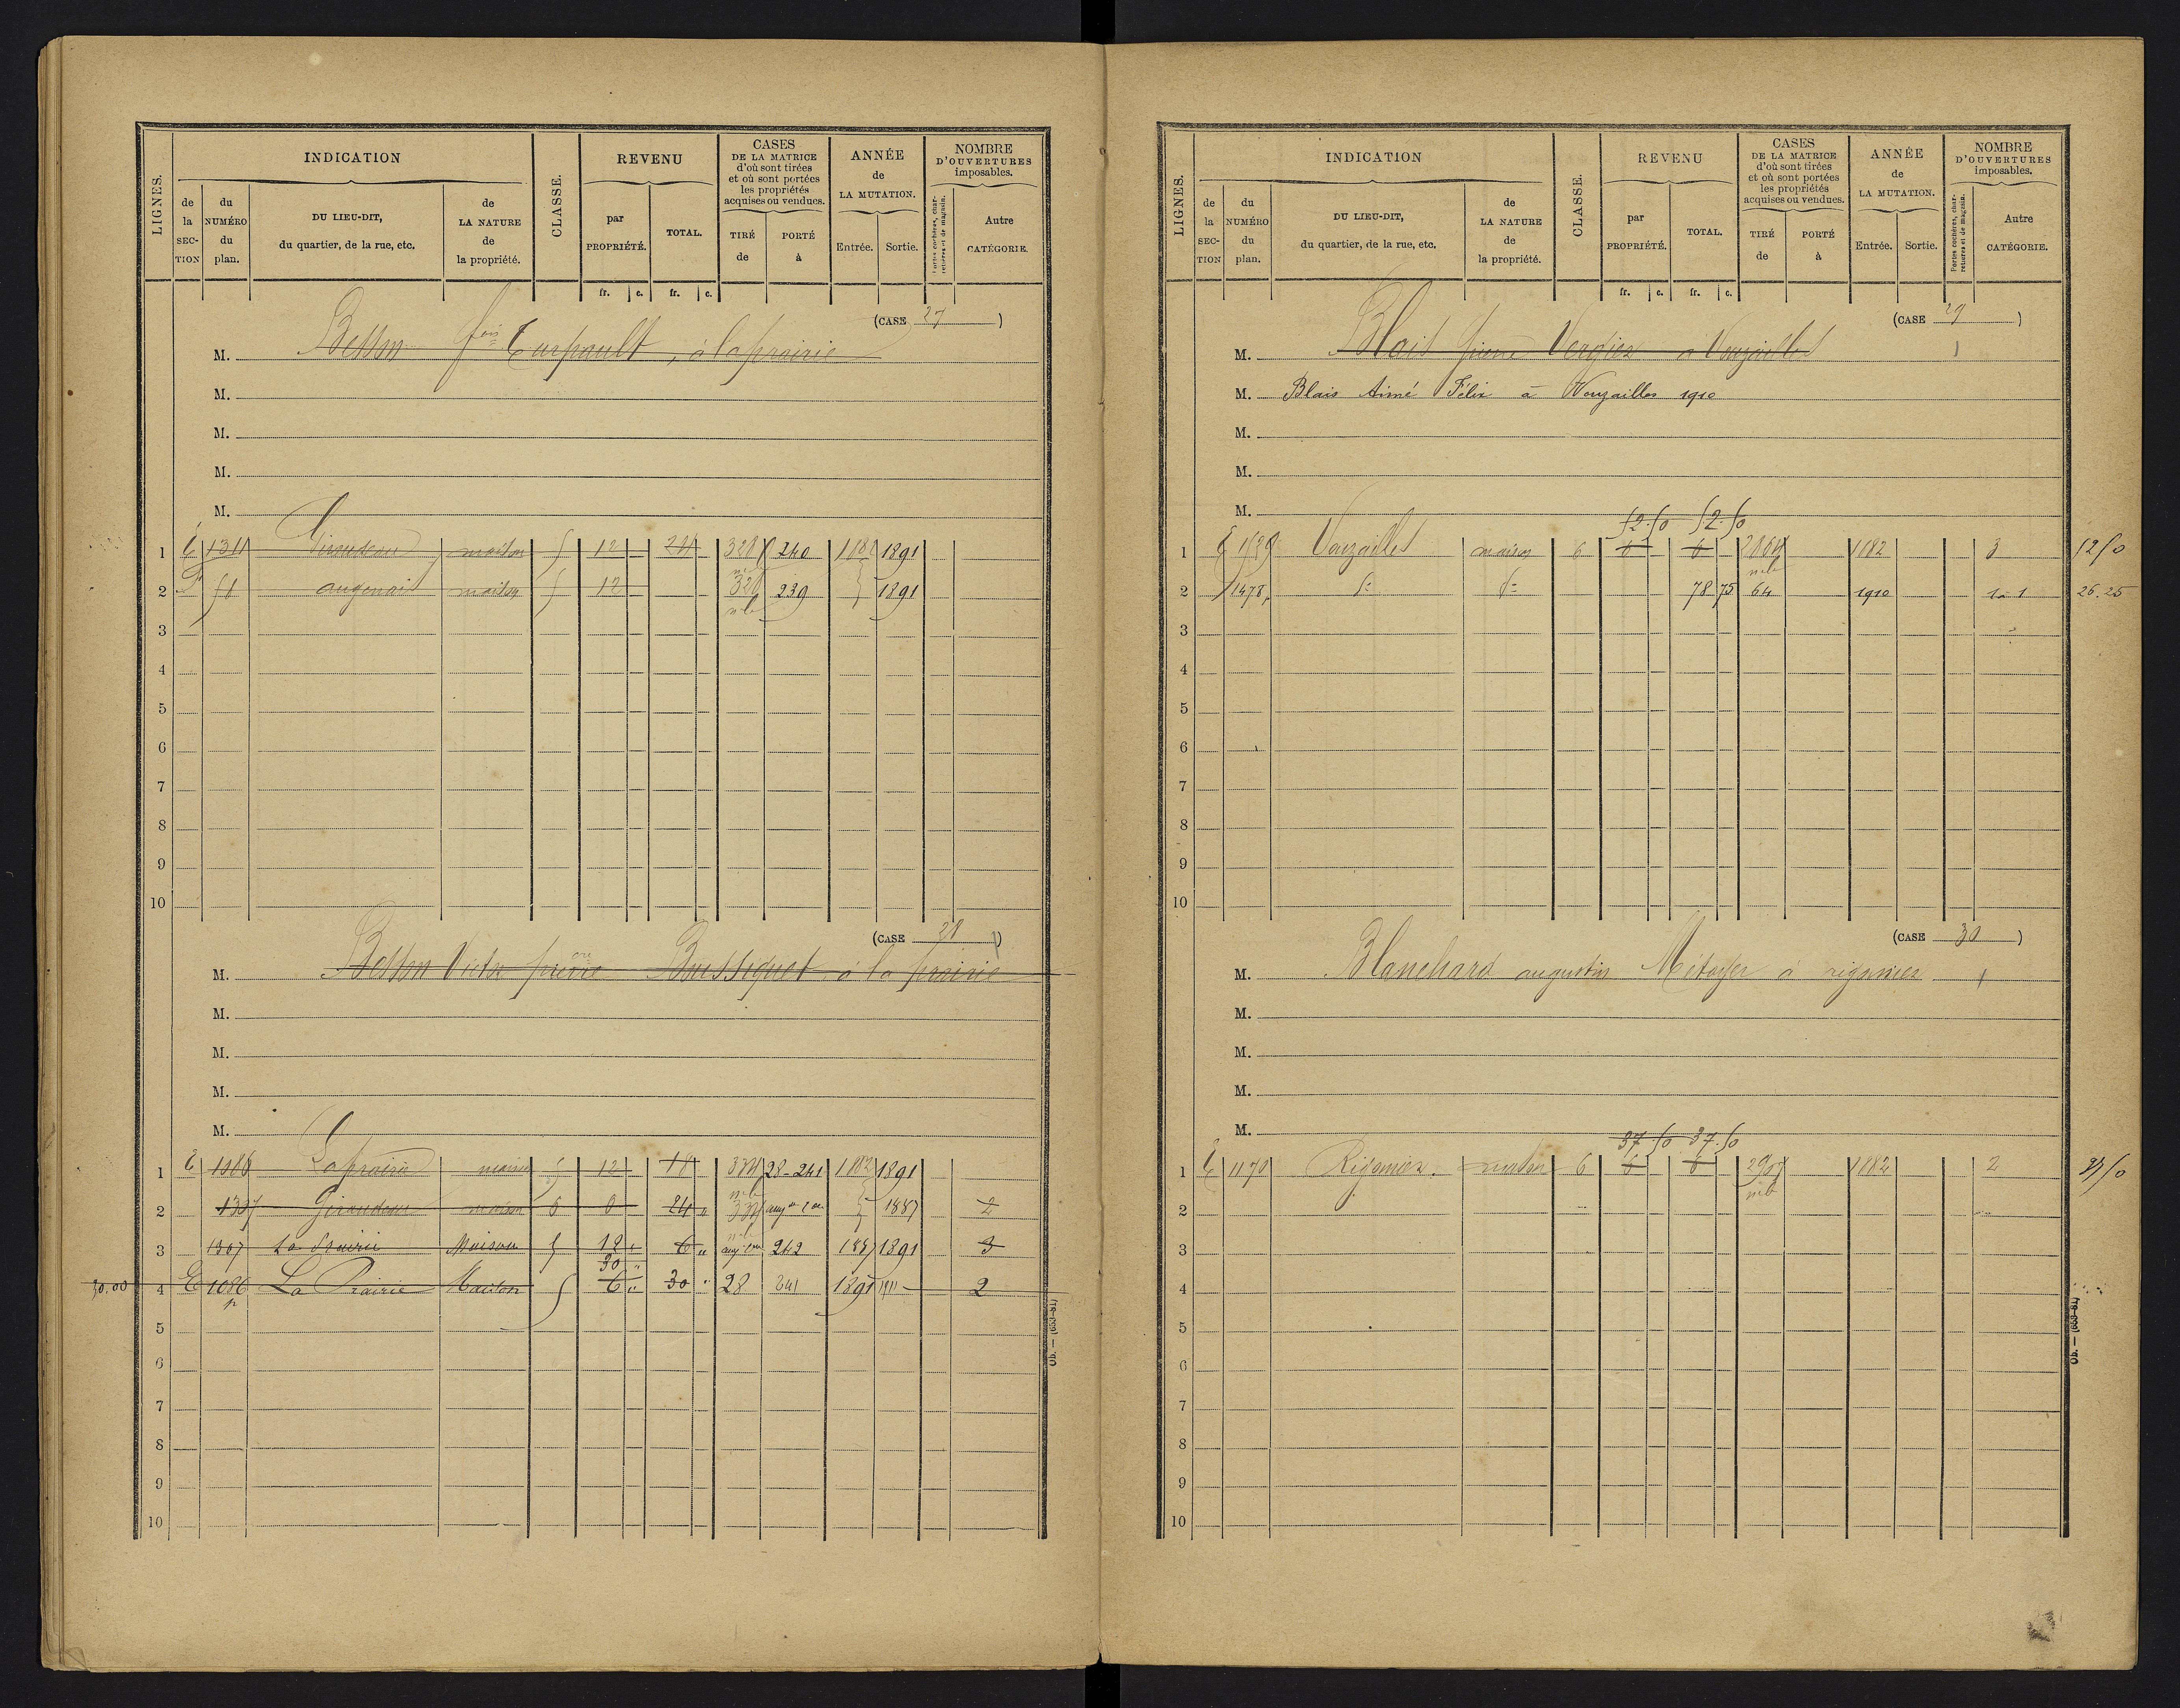 LIGNES.
INDICATION
de la SECTION
du NUMÉRO du plan.
DU LIEU-DIT, du quartier, de la rue, etc.
de LA NATURE de la propriété.
CLASSE.
REVENU
par PROPRIÉTÉ.
TOTAL.
fr. c. fr. c.
CASES DE LA MATRICE d'où sont tirées et où sont portées les propriétés acquises ou vendues.
TIRÉ de
PORTÉ à
ANNÉE de LA MUTATION.
Entrée. Sortie.
NOMBRE D'OUVERTURES imposables.
Portes cochères, charretières et de magasin.
Autre CATÉGORIE.
(CASE 27)
M. Besson fois Turpault, à la prairie
M.
M.
M.
M.
1 E 1311 Giraudeau maison 5 12 24 328 240 1882 1891
2 51 augenais maison 5 12 328 239 1891
3
4
5
6
7
8
9
10
(CASE 28)
M. Besson Victor pierre Bussiquet à la prairie
M.
M.
M.
M.
1 E 1086 La prairie maison 5 12 18 334 28-241 1882 1891
2 1337 Giraudeau maison 6 6 24 334 augon 1887 2
3 1307 La Prairie Maison 5 12 6 242 1887 1891 3
30
30.00 4 E 1086 p La Prairie Maison 5 6 30 28 241 1891 1911 2
5
6
7
8
9
10
Ob. — (653-81)
LIGNES.
INDICATION
de la SECTION
du NUMÉRO du plan.
DU LIEU-DIT, du quartier, de la rue, etc.
de LA NATURE de la propriété.
CLASSE.
REVENU
par PROPRIÉTÉ.
TOTAL.
fr. c. fr. c.
CASES DE LA MATRICE d'où sont tirées et où sont portées les propriétés acquises ou vendues.
TIRÉ de
PORTÉ à
ANNÉE de LA MUTATION.
Entrée. Sortie.
NOMBRE D'OUVERTURES imposables.
Portes cochères, charretières et de magasin.
Autre CATÉGORIE.
(CASE 29)
M. Blais pierre Vergier à Vouzailles
M. Blais Aimé Félix à Vouzailles 1910
M.
M.
M.
52.50 52.50
1 E Vouzailles maison 6 6 6 1882 3
2 1478 p d° d° 78 75 64 1910 1à1 26.25
3
4
5
6
7
8
9
10
(CASE 30)
M. Blanchard augustin Métayer à rigomier
M.
M.
M.
M.
37.50 37.50
1 E 1170 Rigomier maison 6 6 6 1882 2
2
3
4
5
6
7
8
9
10
Ob. — (653-81)